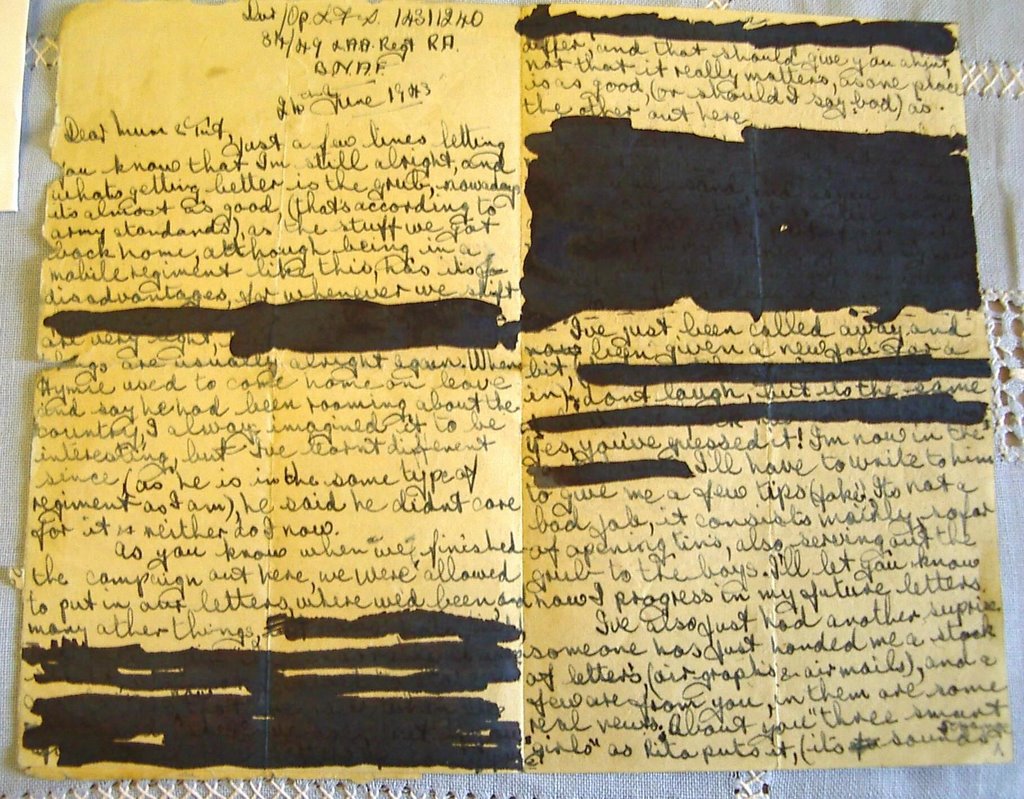 Dvr/Op L.F.S. 14311240
84/49 LAA. Regt RA.
B.N.A.F.
June 1943
Dear Mum &
Just a few lines letting
you know that I'm still alright, and
whats getting better is the grub, nowadays
its almost as good, (thats according to
army standards), as the stuff we got
back home, although being in a
mobile regiment like this, has its
disadvantages, for whenever we shift
are very light,
things are usually alright again. When
Hymie used to come home on leave
and say he had been roaming about the
country, I always imagined it to be
interesting, but I've learnt different
since (as he is in the same type of
regiment as I am), he said he didnt care
for it & neither do I now.
As you know when we finished
the campaign out here, we were allowed
to put in our letters, where we'd been and
many other things,
differ, and that should give you a hint,
not that it really matters, as one place
is as good, (or should I say bad) as
the other out here
I've just been called away and
now been given a new job for a
bit,
in), dont laugh, but its the same
Yes, you've guessed it! I'm now in the
I'll have to write to him
to give me a few tips (joke). Its not a
bad job, it consists mainly, so far
of opening tins, also serving out the
grub to the boys. I'll let you know
how I progress in my future letters.
I've also just had another suprise
someone has just handed me a stack
of letters, (airgraphs & airmails), and a
few are from you, in them are some
real news. About you "three smart
girls" as Rita puts it, (its sounds